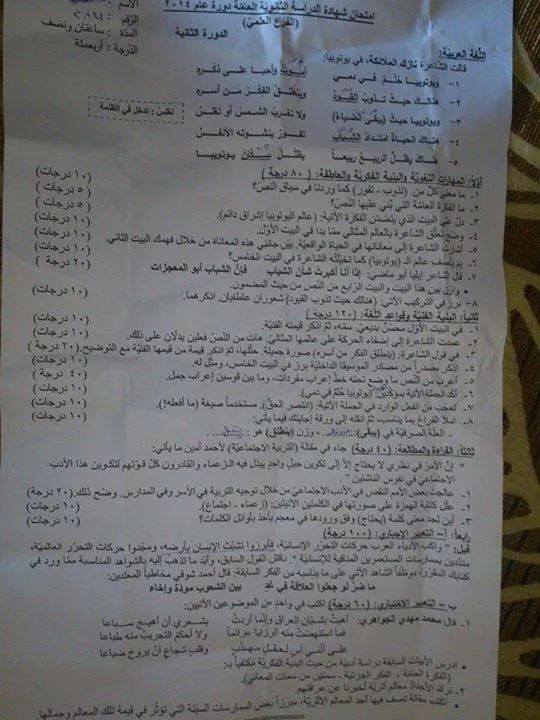 امتحان شهادة الدراسة الثانوية العامة دورة عام ٢٠١٤
(الفرع العلمي)
الدورة الثانية
الاسم :
الرقم :
المدة : ساعتان ونصف
الدرجة : أربعمئة
اللغة العربية:
قالت الشاعرة نازك الملائكة، في يوتوبيا:
١- ويوتوبيا حلم في دمي أموت وأحيا على ذكره
٢- هنالك حيث تذوب القيود وينطلق الفكر من أسره
٣- ويوتوبيا حيث (يبقى الضياء) ولا تغرب الشمس أو تغلس
٤- هناك الحياة امتداد الشباب تفور بنشوته الأنفس
٥- هناك يظل الربيع ربيعاً يظلل سكان يوتوبيا
تغلس : تدخل في الظلمة
أولاً: المهارات اللغوية والبنية الفكرية والعاطفية: (٨٠ درجة)
١- ما معنى كل من (تذوب - تفور) كما وردتا في سياق النص؟ (١٠ درجات)
٢- ما الفكرة العامة التي بني عليها النص؟ (٥ درجات)
٣- دل على البيت الذي يتضمن الفكرة الآتية: (عالم اليوتوبيا إشراق دائم). (٥ درجات)
٤- وضح تعلق الشاعرة بالعالم المثالي مما بدا في البيت الأول. (١٠ درجات)
٥- أشارت الشاعرة إلى معاناتها في الحياة الواقعية. بين جانبي هذه المعاناة من خلال فهمك البيت الثاني. (١٠ درجات)
٦- بم يتصف عالم الـ (يوتوبيا) كما تخيلته الشاعرة في البيت الخامس؟ (١٠ درجات)
٧- قال الشاعر إيليا أبو ماضي: إذا أنا أكبرت شأن الشباب فإن الشباب أبو المعجزات (٢٠ درجة)
• وازن بين هذا البيت والبيت الرابع من النص من حيث المضمون.
٨- برز في التركيب الآتي: (هنالك حيث تذوب القيود) شعوران عاطفيان. اذكرهما. (١٠ درجات)
ثانياً: البنية الفنية وقواعد اللغة: (١٢٠ درجة)
١- في البيت الأول محسن بديعي. سمه، ثم اذكر قيمته الفنية. (١٠ درجات)
٢- عمدت الشاعرة إلى إضفاء الحركة على عالمها المثالي. هات من النص فعلين يدلان على ذلك. (١٠ درجات)
٣- في قول الشاعرة: (ينطلق الفكر من أسره) صورة جميلة. حللها، ثم اذكر قيمة من قيمها الفنية مع التوضيح. (٢٠ درجة)
٤- اذكر مصدراً من مصادر الموسيقا الداخلية برز في البيت الخامس، ومثل له. (١٠ درجات)
٥- أعرب من النص ما وضع تحته خط إعراب مفردات، وما بين قوسين إعراب جمل. (٤٠ درجة)
٦- أكد الجملة الآتية بمؤكدين: (يوتوبيا حلم في دمي). (١٠ درجات)
٧- تعجب من الفعل الوارد في الجملة الآتية: (انتصر الحق). مستخدماً صيغة (ما أفعله!). (١٠ درجات)
٨- املأ الفراغ بما يناسب، ثم انقله إلى ورقة إجابتك فيما يأتي: (١٠ درجات)
- العلة الصرفية في (يبقى): وزن (ينطلق) هو :
ثالثاً: القراءة والمطالعة: (٤٠ درجة) جاء في مقالة (التربية الاجتماعية) لأحمد أمين ما يأتي:
" إن الأمر في نظري لا يحتاج إلا إلى تكوين جيل واحد يبذل فيه الزعماء والقادرون كل قوتهم لتكوين هذا الأدب
الاجتماعي في نفوس الناشئين "
١- عالجت بعض أسس النقص في الأدب الاجتماعي من خلال توجيه التربية في الأسر وفي المدارس. وضح ذلك. (٢٠ درجة)
٢- علل كتابة الهمزة على صورتها في الكلمتين الآتيتين: (زعماء - اجتماع). (١٠ درجات)
٣- أين تجد معنى كلمة (يحتاج) وفق ورودها في معجم يأخذ بأوائل الكلمات؟ (١٠ درجات)
رابعاً: أ- التعبير الإجباري: (١٠٠ درجة)
قيل: " واكب الأدباء العرب حركات التحرر الإنسانية، فأبرزوا تشبث الإنسان بأرضه، ومجدوا حركات التحرر العالمية،
منددين بممارسات المستعمرين المنافية للإنسانية " ناقش القول السابق، وأيد ما تذهب إليه بالشواهد المناسبة مما ورد في
كتابك المقرر، موظفاً الشاهد الآتي على ما يناسبه من الفكر السابقة: قال أحمد شوقي مخاطباً المعتدين:
ما ضر لو جعلوا العلاقة في غد بين الشعوب مودة وإخاء
ب - التعبير الاختياري: (٦٠ درجة) اكتب في واحد من الموضوعين الآتيين:
١. قال محمد مهدي الجواهري: أهبت بشبان العراق وإنما أردت بشعري أن أهيج سباعا
فما استنهضت منه الرزايا عزائماً ولا أحكم التجريب منه طباعا
على أنني آس لعقل مهذب وقلب شجاع أن يروح ضياعا
• ادرس الأبيات السابقة دراسة أدبية من حيث البنية الفكرية مكتفياً بـ:
(الفكرة العامة - الفكر الجزئية - سمتين من سمات المعاني).
٢. ترك الأجداد معالم أثرية تخبرنا عن عراقتهم
اكتب مقالة تصف فيها أحد المعالم الأثرية، مبرزاً بعض الممارسات السيئة التي تؤثر في قيمة تلك المعالم وجمالها.